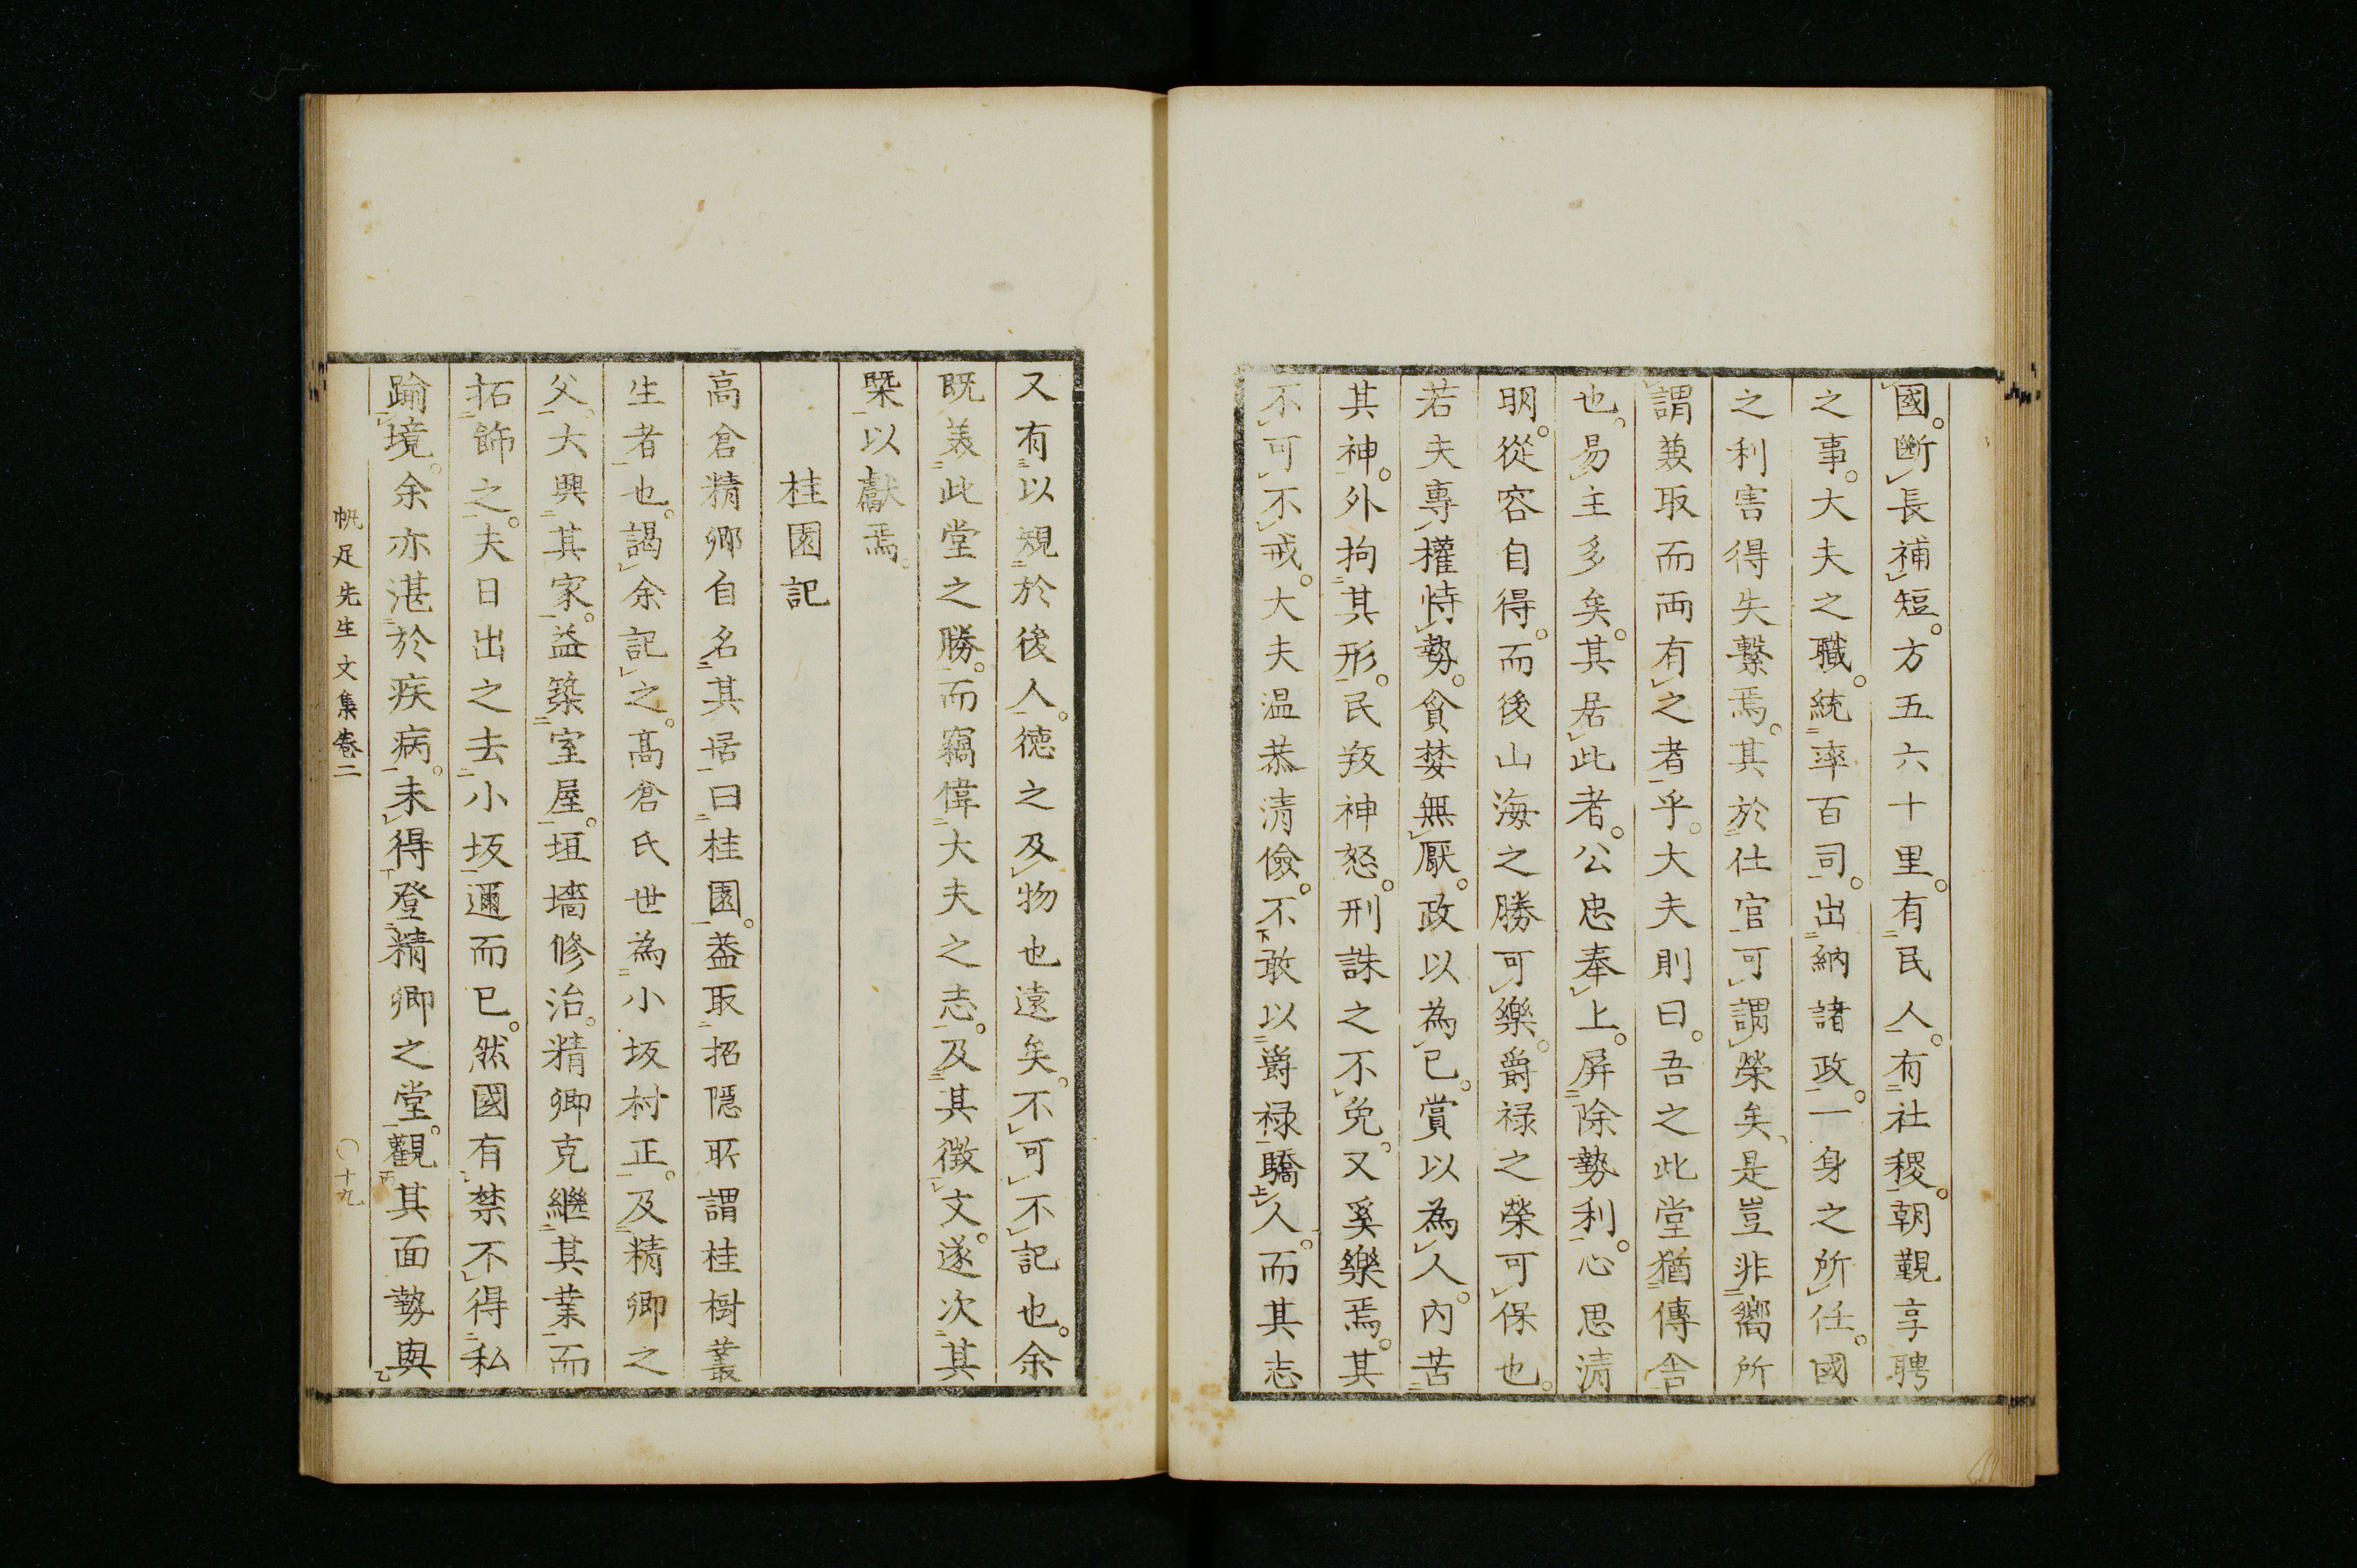 國。斷長補短。方五六十里。有民人。有社稷。朝覲享聘
之事。大夫之職。統率百司。出納諸政。一身之所任。國
之利害得失繫焉。其於仕官可謂榮矣、是豈非嚮所
謂兼取而両有之者乎。大夫則曰。吾之此堂猶傳舎
也。易主多矣。其居此者。公忠奉上。屏除勢利。心思清
明。從容自得。而後山海之勝可樂。爵禄之榮可保也。
若夫專權恃勢。貪婪無厭。政以為己。賞以為人。内苦
其神。外拘其形。民叛神怒。刑誅之不免。又奚樂焉。其
不可不戒。大夫温恭清儉。不敢以爵禄驕人。而其志
又有以規於後人。德之及物也遠矣。不可不記也。余
既羨此堂之勝。而竊偉大夫之志。及其徴文。遂次其
槩以獻焉。
桂園記
高倉精卿自名其居曰桂園。葢取招隠所謂桂樹叢
生者也。謁余記之。髙倉氏世為小坂村正。及精卿之
父。大興其家。益築室屋。垣墻修治。精卿克繼其業而
拓飾之。夫日出之去小坂邇而已。然國有禁不得私
踰境。余亦湛於疾病。未得登精卿之堂。觀其面勢與
帆足先生文集巻二
〇十九